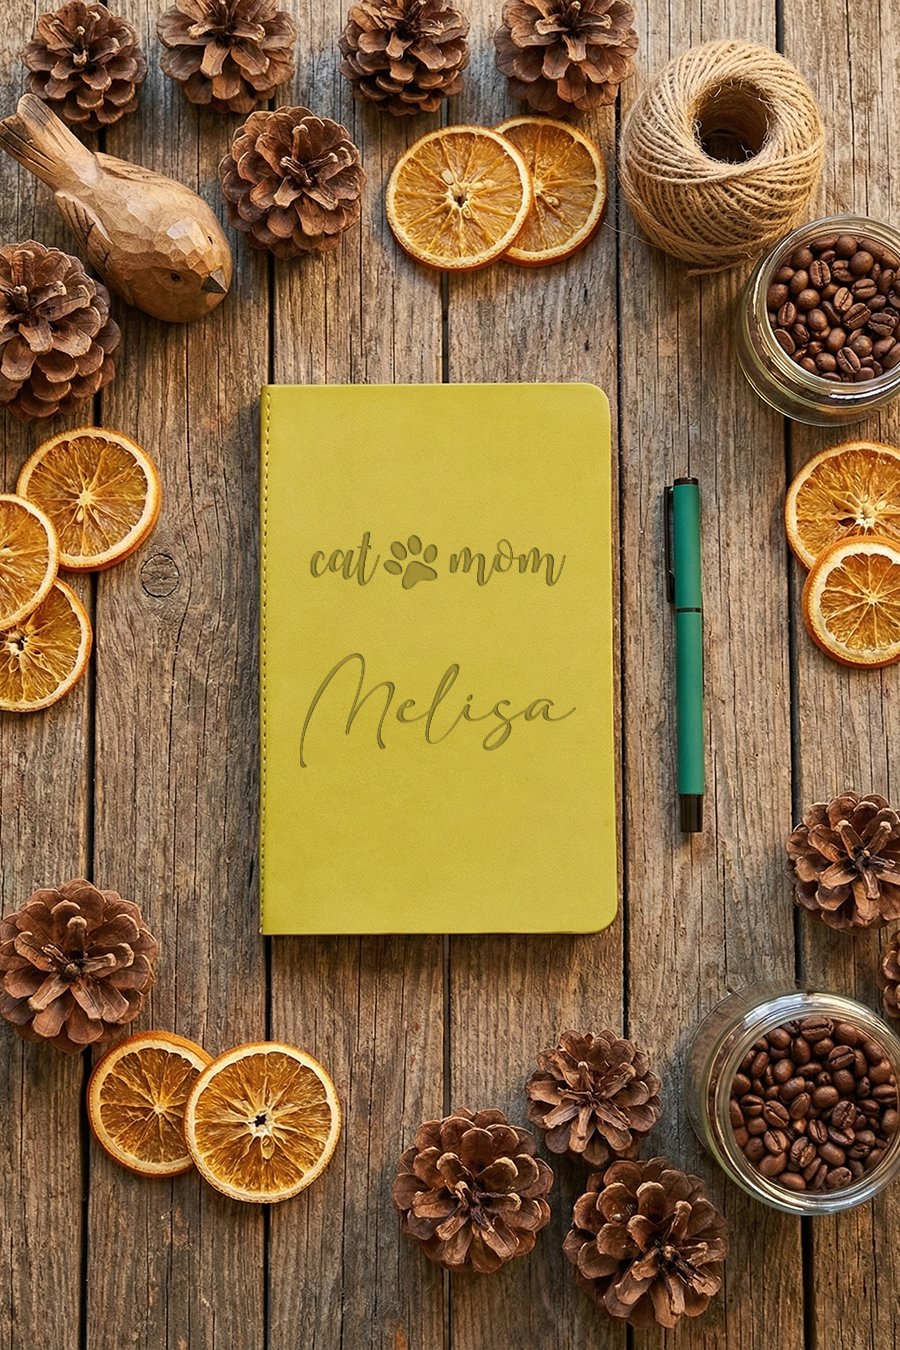 cat mom
Melisa